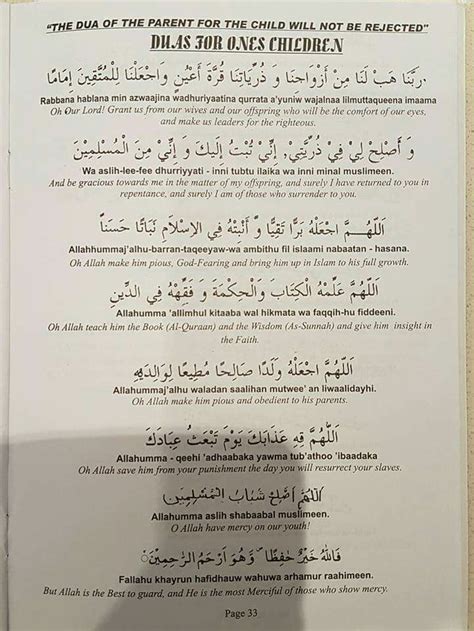 “THE DUA OF THE PARENT FOR THE CHILD WILL NOT BE REJECTED”
DUAS FOR ONES CHILDREN
رَبَّنَا هَبْ لَنَا مِنْ أَزْوَاجِنَا وَ ذُرِّيَاتِنَا قُرَّةَ أَعْيُنٍ وَاجْعَلْنَا لِلْمُتَّقِينَ إِمَامًا
Rabbana hablana min azwaajina wadhuriyaatina qurrata a'yuniw wajalnaa lilmuttaqueena imaama
Oh Our Lord! Grant us from our wives and our offspring who will be the comfort of our eyes,
and make us leaders for the righteous.
وَ أَصْلِحْ لِيْ فِيْ ذُرِّيَّتِيْ, إِنِّيْ تُبْتُ إِلَيْكَ وَ إِنِّيْ مِنَ الْمُسْلِمِيْنَ
Wa aslih-lee-fee dhurriyyati - inni tubtu ilaika wa inni minal muslimeen.
And be gracious towards me in the matter of my offspring, and surely I have returned to you in
repentance, and surely I am of those who surrender to you.
اَللَّهُمَّ اجْعَلْهُ بَرًّا تَقِيًّا وَ أَنْبِتْهُ فِي الْاِسْلَامِ نَبَاتًا حَسَنًا
Allahhummaj'alhu-barran-taqeeyaw-wa ambithu fil islaami nabaatan - hasana.
Oh Allah make him pious, God-Fearing and bring him up in Islam to his full growth.
اَللَّهُمَّ عَلِّمْهُ الْكِتَابَ وَالْحِكْمَةَ وَ فَقِّهْهُ فِي الدِّيْنِ
Allahumma 'allimhul kitaaba wal hikmata wa faqqih-hu fiddeeni.
Oh Allah teach him the Book (Al-Quraan) and the Wisdom (As-Sunnah) and give him insight in
the Faith.
اَللَّهُمَّ اجْعَلْهُ وَلَدًا صَالِحًا مُطِيعًا لِوَالِدَيْهِ
Allahumaj'alhu waladan saalihan mutwee' an liwaalidayhi.
Oh Allah make him pious and obedient to his parents.
اَللَّهُمَّ قِهِ عَذَابَكَ يَوْمَ تَبْعَثُ عِبَادَكَ
Allahumma - qeehi 'adhaabaka yawma tub'athoo 'ibaadaka
Oh Allah save him from your punishment the day you will resurrect your slaves.
اَللَّهُمَّ اَصْلِحْ شَبَابَ الْمُسْلِمِيْنَ
Allahumma aslih shabaabal muslimeen.
O Allah have mercy on our youth!
فَاللَّهُ خَيْرٌ حَفِظًا وَهُوَ اَرْحَمُ الرَّحِمِيْنَ
Fallahu khayrun hafidhauw wahuwa arhamur raahimeen.
But Allah is the Best to guard, and He is the most Merciful of those who show mercy.
Page 33